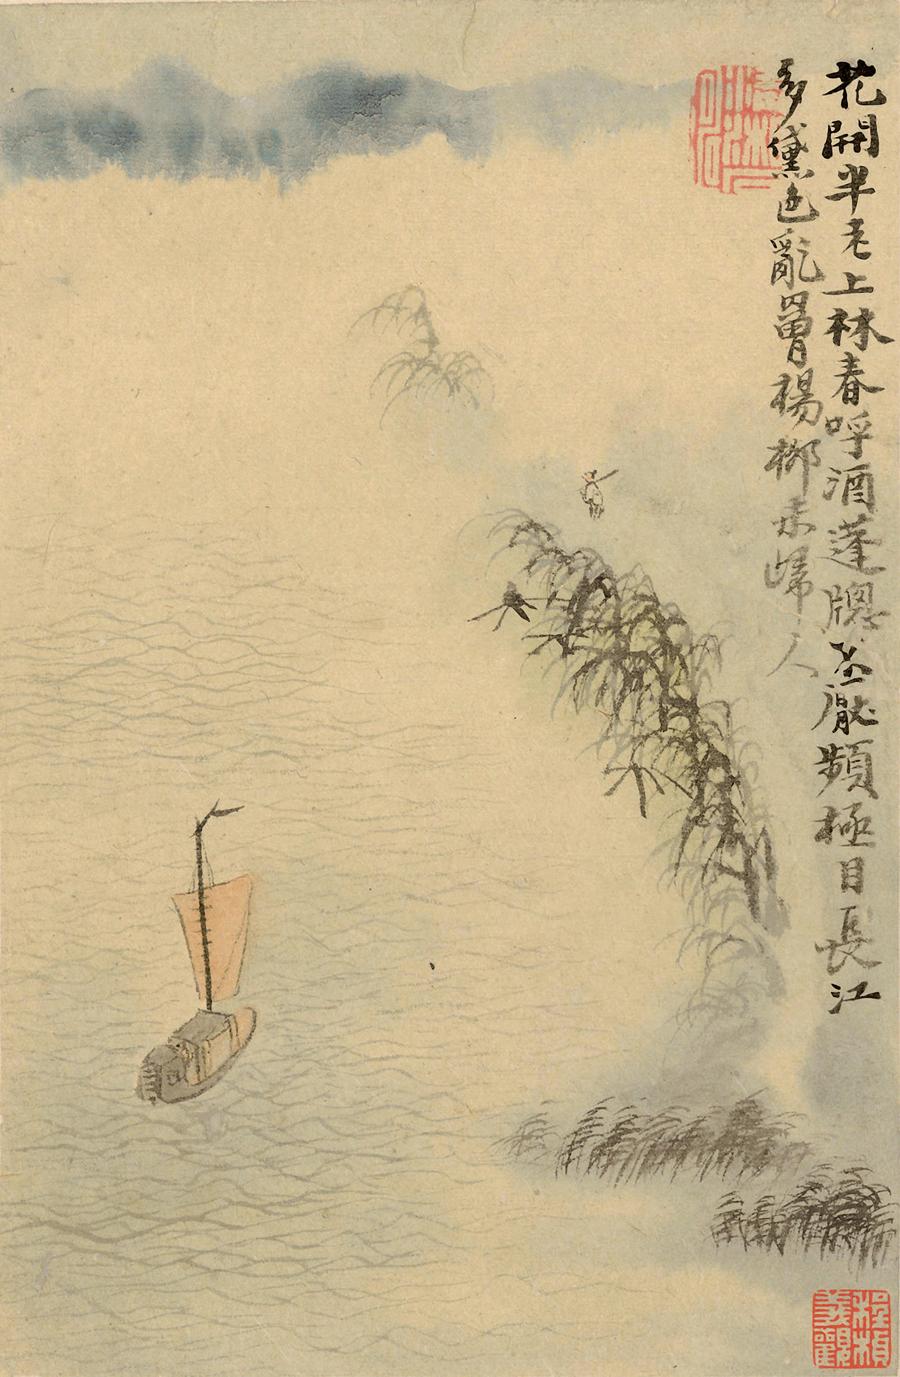 花開半老上林春呼酒蓬牕不厭頻極目長江
多黛色亂罥楊柳未歸人
程楨義觀